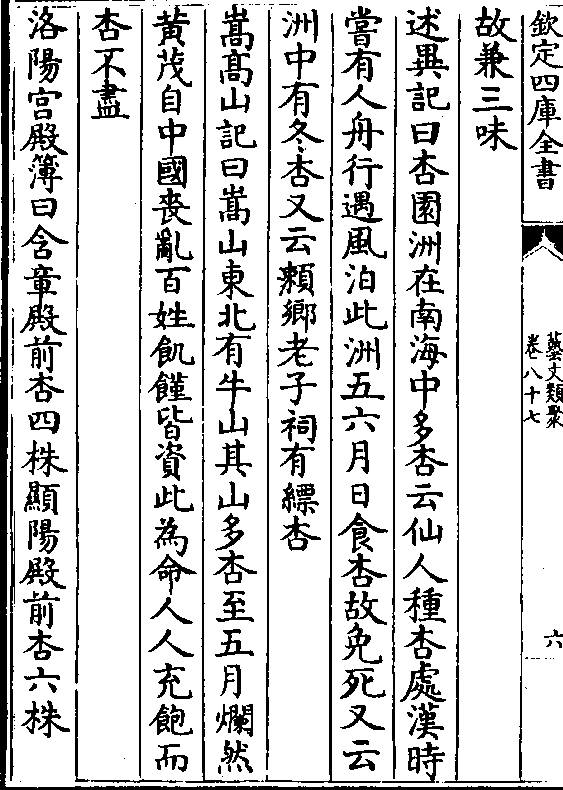 欽定四庫全書
藝文類聚
卷八十七
六
故兼三味
述異記曰杏園洲在南海中多杏云仙人種杏處漢時
嘗有人舟行遇風泊此洲五六月日食杏故免死又云
洲中有冬杏又云賴鄉老子祠有縹杏
嵩髙山記曰嵩山東北有牛山其山多杏至五月爛然
黄茂自中國喪亂百姓飢饉皆資此為命人人充飽而
杏不盡
洛陽宫殿簿曰含章殿前杏四株顯陽殿前杏六株